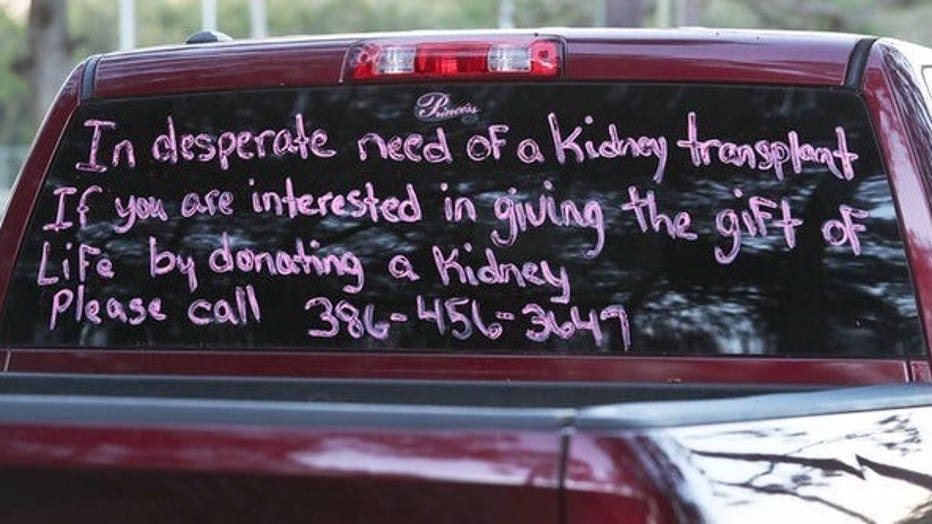 Princess
In desperate need of a Kidney transplant
If you are interested in giving the gift of
Life by donating a Kidney
Please call 386-456-3647